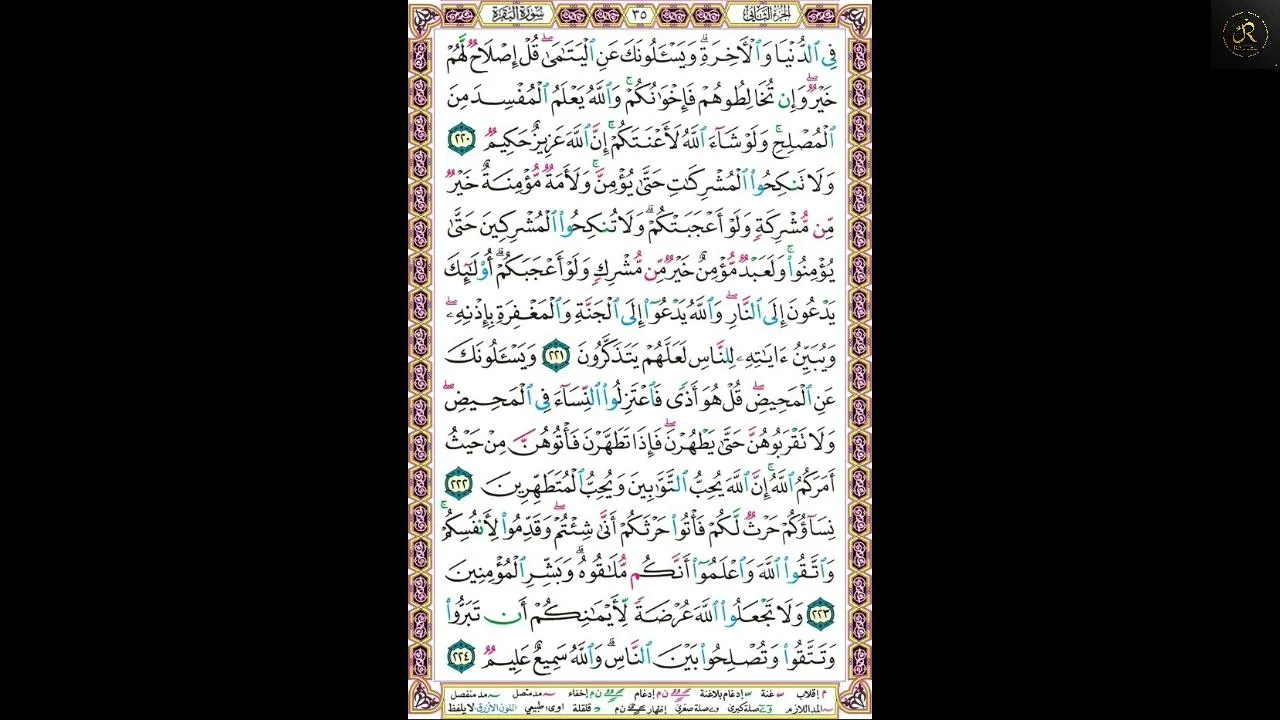 الجزء الثاني ٣٥ سورة البقرة
فِي الدُّنْيَا وَالْآخِرَةِ ۗ وَيَسْـَٔلُونَكَ عَنِ الْيَتَامَىٰ ۖ قُلْ إِصْلَاحٌ لَّهُمْ
خَيْرٌ ۖ وَإِن تُخَالِطُوهُمْ فَإِخْوَانُكُمْ ۚ وَاللَّهُ يَعْلَمُ الْمُفْسِدَ مِنَ
الْمُصْلِحِ ۚ وَلَوْ شَآءَ اللَّهُ لَأَعْنَتَكُمْ ۚ إِنَّ اللَّهَ عَزِيزٌ حَكِيمٌ ٢٢٠
وَلَا تَنكِحُوا الْمُشْرِكَٰتِ حَتَّىٰ يُؤْمِنَّ ۚ وَلَأَمَةٌ مُّؤْمِنَةٌ خَيْرٌ
مِّن مُّشْرِكَةٍ وَلَوْ أَعْجَبَتْكُمْ ۗ وَلَا تُنكِحُوا الْمُشْرِكِينَ حَتَّىٰ
يُؤْمِنُوا ۚ وَلَعَبْدٌ مُّؤْمِنٌ خَيْرٌ مِّن مُّشْرِكٍ وَلَوْ أَعْجَبَكُمْ ۗ أُولَٰٓئِكَ
يَدْعُونَ إِلَى النَّارِ ۖ وَاللَّهُ يَدْعُوٓا إِلَى الْجَنَّةِ وَالْمَغْفِرَةِ بِإِذْنِهِ ۖ
وَيُبَيِّنُ ءَايَاتِهِ لِلنَّاسِ لَعَلَّهُمْ يَتَذَكَّرُونَ ٢٢١ وَيَسْـَٔلُونَكَ
عَنِ الْمَحِيضِ ۖ قُلْ هُوَ أَذًى فَاعْتَزِلُوا النِّسَآءَ فِي الْمَحِيضِ ۖ
وَلَا تَقْرَبُوهُنَّ حَتَّىٰ يَطْهُرْنَ ۖ فَإِذَا تَطَهَّرْنَ فَأْتُوهُنَّ مِنْ حَيْثُ
أَمَرَكُمُ اللَّهُ ۚ إِنَّ اللَّهَ يُحِبُّ التَّوَّابِينَ وَيُحِبُّ الْمُتَطَهِّرِينَ ٢٢٢
نِسَآؤُكُمْ حَرْثٌ لَّكُمْ فَأْتُوا حَرْثَكُمْ أَنَّىٰ شِئْتُمْ ۖ وَقَدِّمُوا لِأَنفُسِكُمْ ۚ
وَاتَّقُوا اللَّهَ وَاعْلَمُوٓا أَنَّكُم مُّلَاقُوهُ ۗ وَبَشِّرِ الْمُؤْمِنِينَ
٢٢٣ وَلَا تَجْعَلُوا اللَّهَ عُرْضَةً لِّأَيْمَانِكُمْ أَن تَبَرُّوا
وَتَتَّقُوا وَتُصْلِحُوا بَيْنَ النَّاسِ ۗ وَاللَّهُ سَمِيعٌ عَلِيمٌ ٢٢٤
م إقلاب غنة إدغام بلاغنة ن م إدغام ن م إخفاء مد متصل مد منفصل
المد اللازم صلة كبرى صلة صغرى إظهار ن م قلقلة اوى: طبيعي اللون الأزرق لا يلفظ